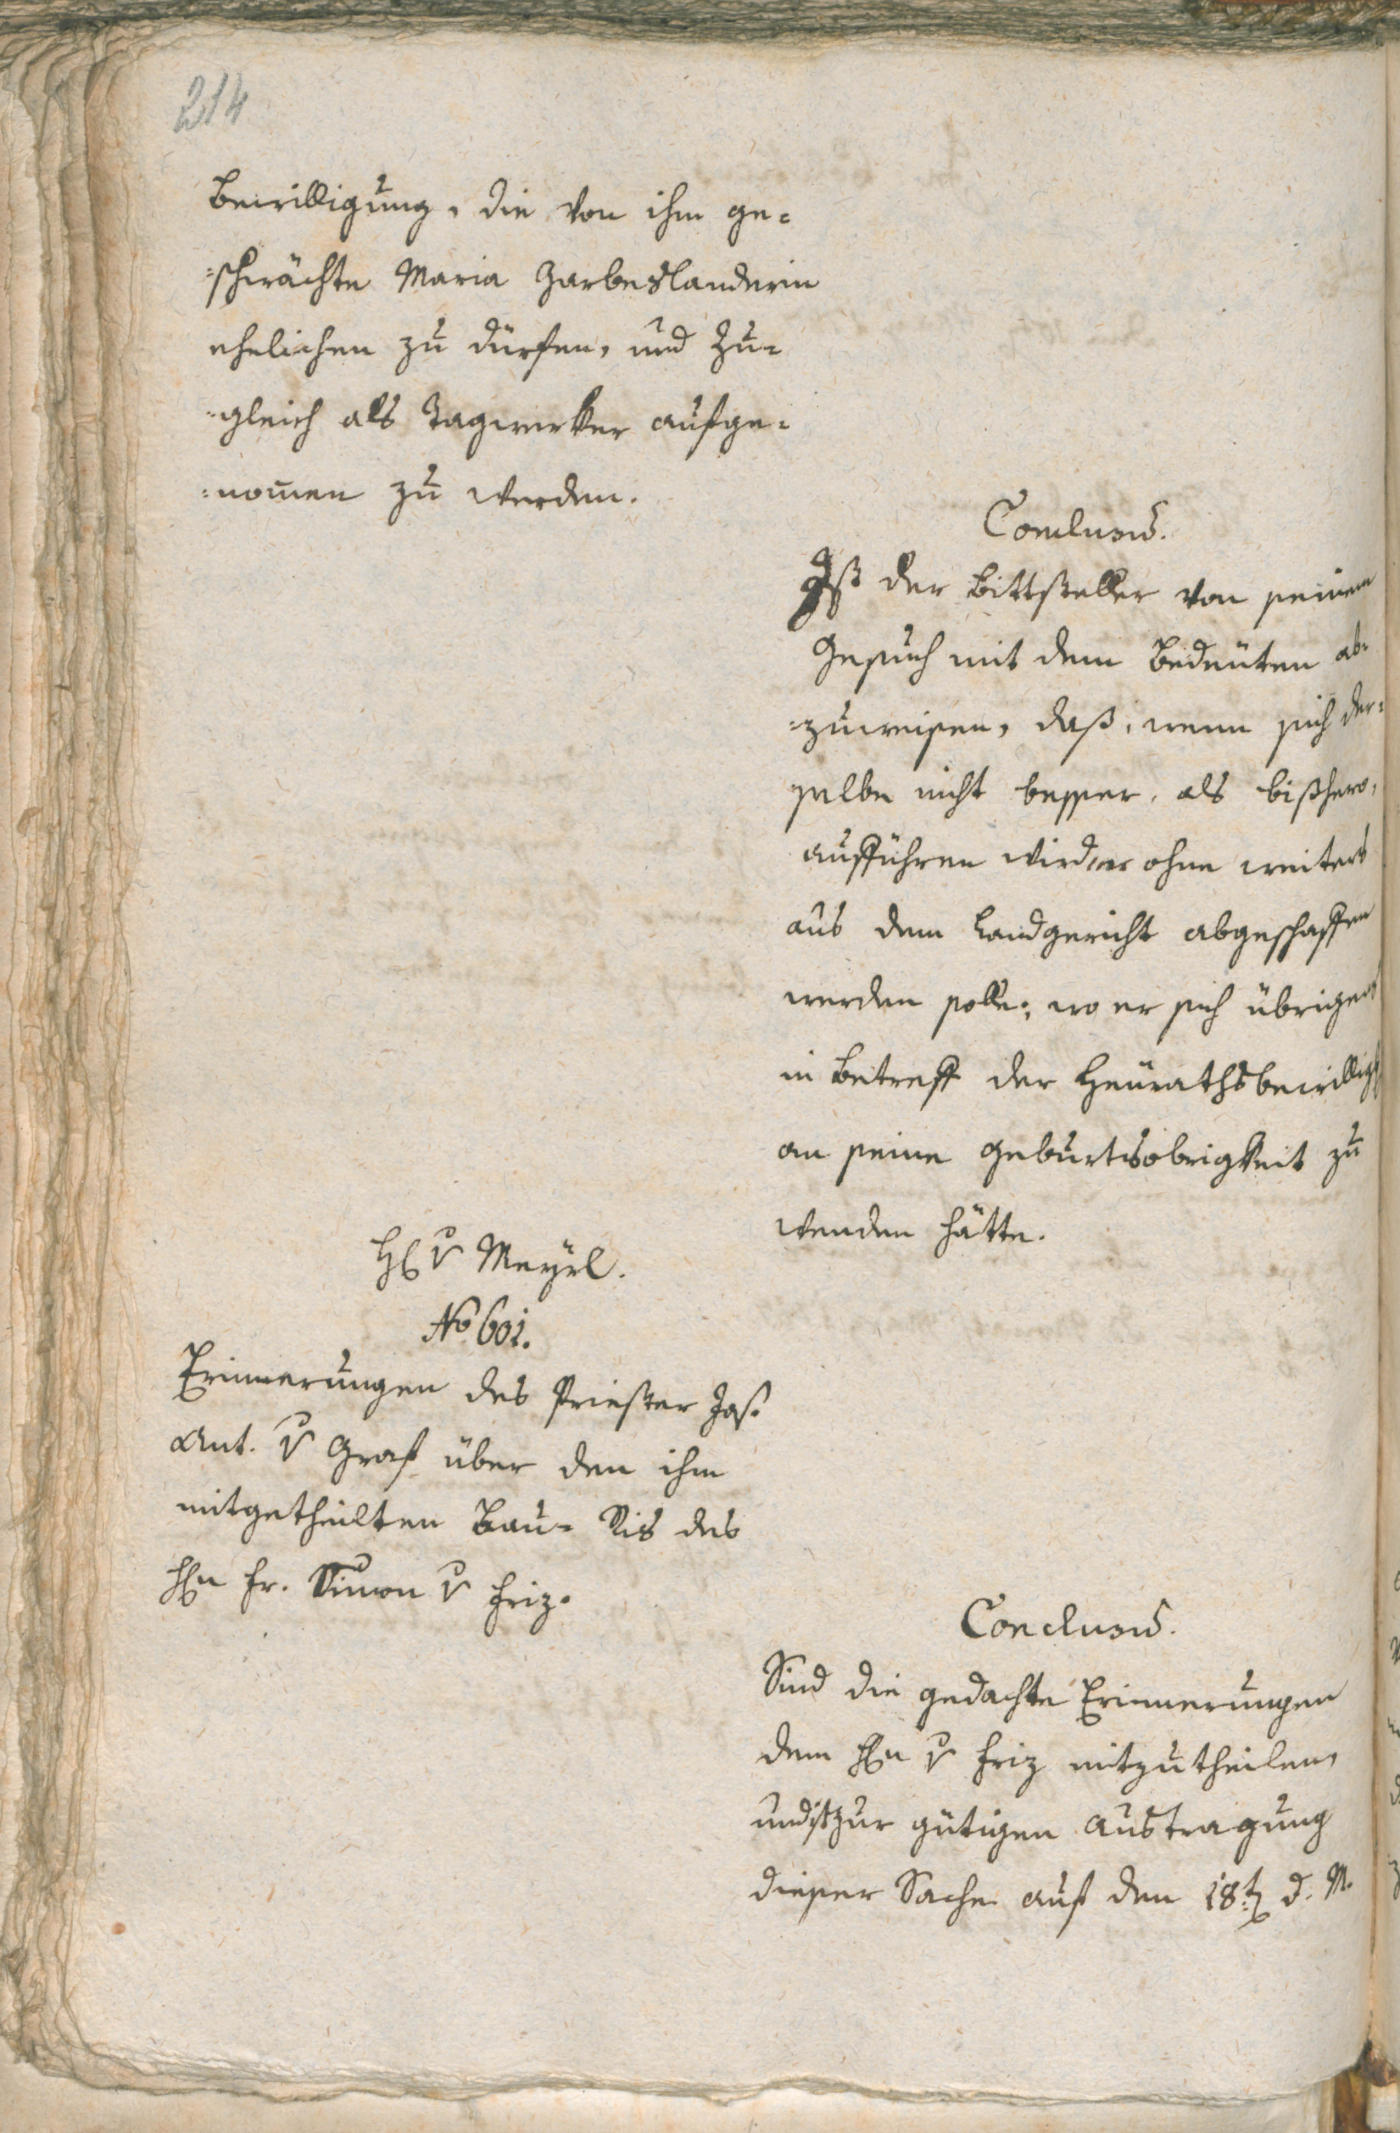 214
Bewilligung, die von ihm ge-
-schwächte Maria Zarbeslanderin
ehelichen zu dürfen, und zu-
-gleich als Tagwerker aufge-
-nom̅en zu werden.
Conclusu̅.
Ist der Bittsteller von seinem
Gesuch mit dem Bedeuten ab-
-zuweisen, daß, wenn sich der-
selbe nicht besser, als bißhero,
aufführen wird, er ohne weiters
aus dem Landgericht abgeschaffen
werden solle; wo er sich übrigens
in Betreff der Heurathsbewillig
an seine Geburtsobrigkeit zu
wenden hätte.
H v Mayrl.
No 601.
Erinnerungen des Priester Jos.
Ant. v Graf über den ihm
mitgetheilten Bau- Ris des
Hn Fr. Simon v Friz.
Conclusu̅.
Sind die gedachte Erinnerungen
dem Hn v Friz mitzutheilen,
und ist zur gütigen Austragung
dieser Sache auf den 18t d. M.